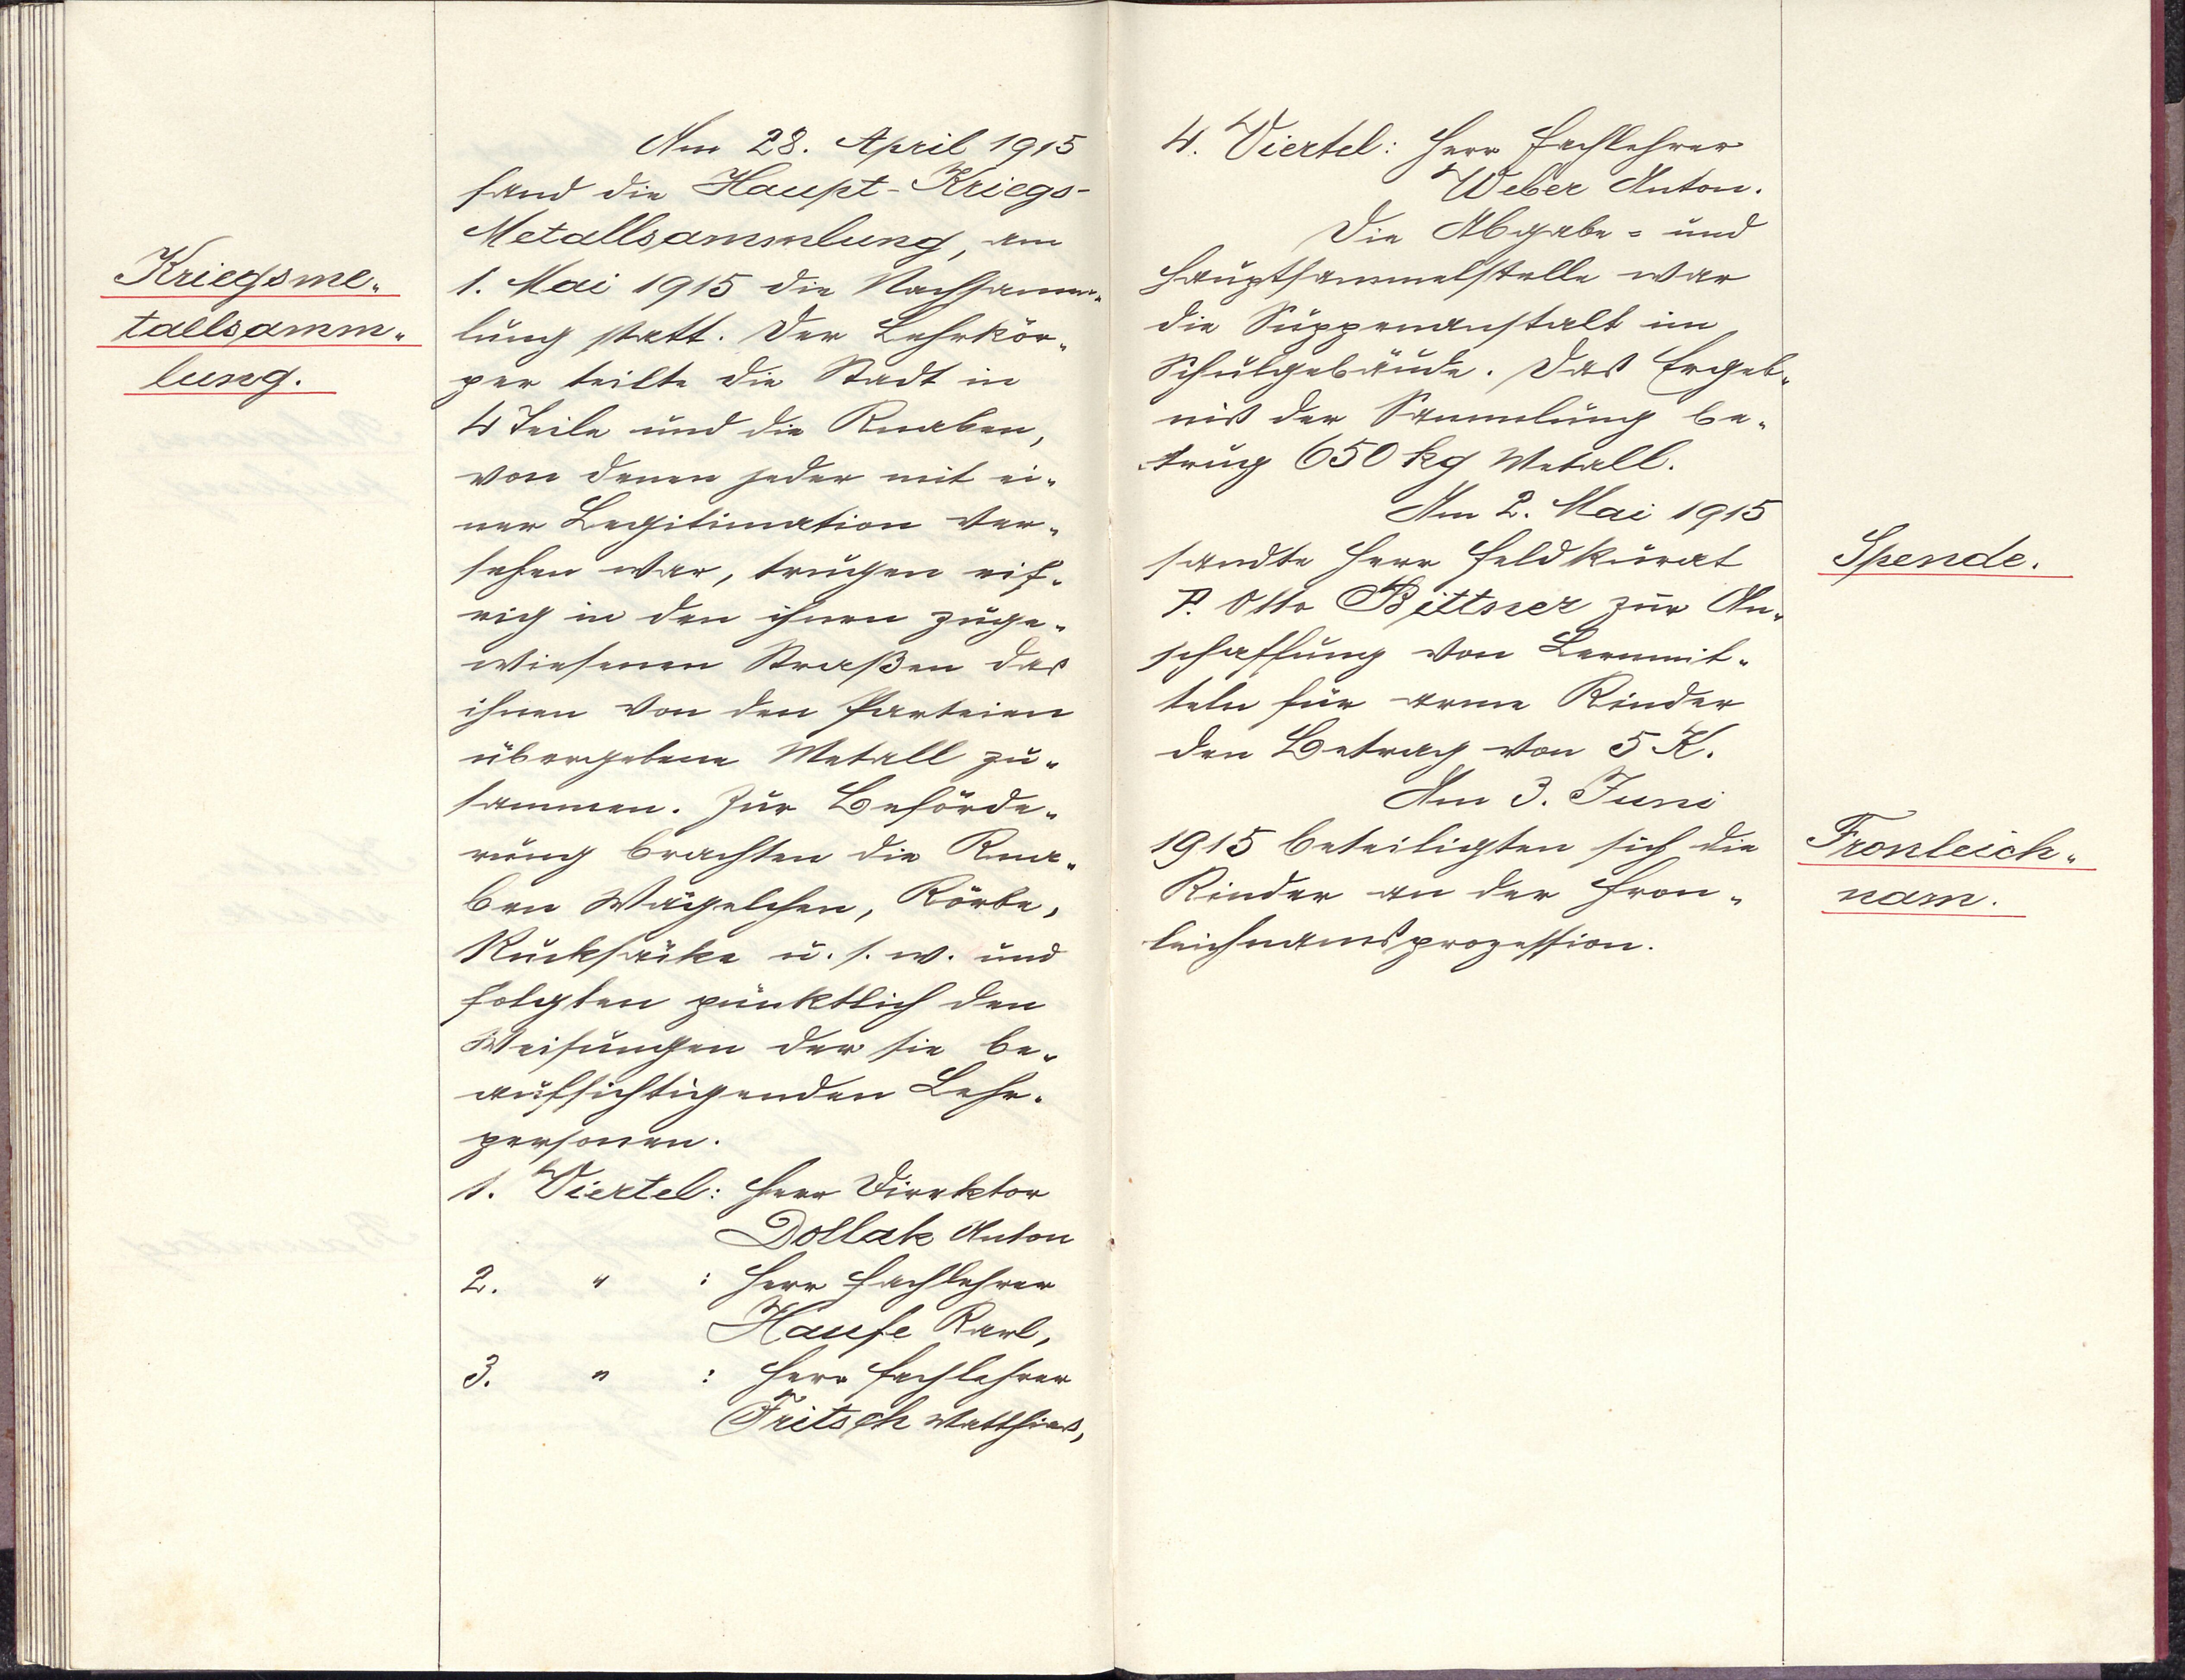 Kriegsme-
tallsamm-
lung.
Am 28. April 1915
fand die Haupt-Kriegs-
Metallsammlung, am
1. Mai 1915 die Nachsamm-
lung statt. Der Lehrkör-
per teilte die Stadt in
4 Teile und die Knaben,
von denen jeder mit ei-
ner Legitimation ver-
sehen war, trugen eif-
rig in den ihnen zuge-
wiesenen Straßen das
ihnen von den Parteien
übergebene Metall zu-
sammen. Zur Beförde-
rung brachten die Kna-
ben Wägelchen, Körbe,
Rucksäcke u. s. w. und
folgten pünktlich den
Weisungen der sie be-
aufsichtigenden Lehr-
personen.
1. Viertel: Herr Direktor
Dollak Anton
2. " : Herr Fachlehrer
Haufe Karl,
3. " : Herr Fachlehrer
Fritsch Matthias,
4. Viertel: Herr Fachlehrer
Weber Anton.
Die Abgabe- und
Hauptsammelstelle war
die Suppenanstalt im
Schulgebäude. Das Ergeb-
nis der Sammlung be-
trug 650 kg Metall.
Am 2. Mai 1915
sandte Herr Feldkurat
P. Otto Bittner zur An-
schaffung von Lernmit-
teln für arme Kinder
den Betrag von 5 K.
Am 3. Juni
1915 beteiligten sich die
Kinder an der Fron-
leichnamsprozession.
Spende.
Fronleich-
nam.